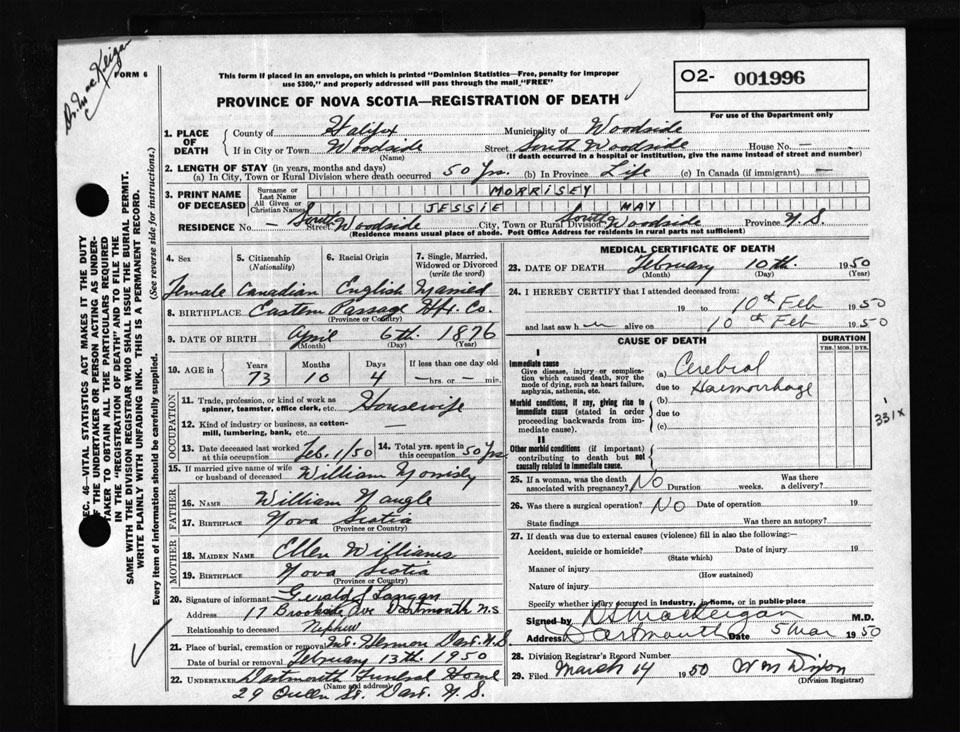 Dr. MacKeigan
FORM 6
This form if placed in an envelope, on which is printed "Dominion Statistics—Free, penalty for improper
use $300," and properly addressed will pass through the mail "FREE"
O2- 001996
For use of the Department only
PROVINCE OF NOVA SCOTIA—REGISTRATION OF DEATH
1. PLACE OF DEATH County of Halifax Municipality of Woodside
If in City or Town Woodside Street South Woodside House No. —
(Name) (If death occurred in a hospital or institution, give the name instead of street and number)
2. LENGTH OF STAY (in years, months and days)
(a) In City, Town or Rural Division where death occurred 50 Yrs. (b) In Province Life (c) In Canada (if immigrant) —
3. PRINT NAME OF DECEASED Surname or Last Name MORRISEY
All Given or Christian Names JESSIE MAY
RESIDENCE No. — Street South Woodside City, Town or Rural Division South Woodside Province N.S.
(Residence means usual place of abode. Post Office Address for residents in rural parts not sufficient)
4. Sex 5. Citizenship (Nationality) 6. Racial Origin 7. Single, Married, Widowed or Divorced (write the word)
Female Canadian English Married
8. BIRTHPLACE Eastern Passage Hfx. Co.
(Province or Country)
9. DATE OF BIRTH April 6th. 1876
(Month) (Day) (Year)
10. AGE in Years Months Days If less than one day old
73 10 4 — hrs. or — min.
OCCUPATION
11. Trade, profession, or kind of work as spinner, teamster, office clerk, etc. Housewife
12. Kind of industry or business, as cotton-mill, lumbering, bank, etc. —
13. Date deceased last worked at this occupation Feb. 1/50 14. Total yrs. spent in this occupation 50 Yrs.
15. If married give name of wife or husband of deceased William Morrisey
FATHER
16. NAME William Naugle
17. BIRTHPLACE Nova Scotia
(Province or Country)
MOTHER
18. MAIDEN NAME Ellen Williams
19. BIRTHPLACE Nova Scotia
(Province or Country)
20. Signature of informant Gerald Langan
Address 17 Brookside Ave Dartmouth N.S
Relationship to deceased Nephew
21. Place of burial, cremation or removal Mt. Hermon Dart. N.S
Date of burial or removal February 13th. 1950
22. UNDERTAKER Dartmouth Funeral Home
(Name and address)
29 Queen St. Dart. N.S.
MEDICAL CERTIFICATE OF DEATH
23. DATE OF DEATH February 10th. 1950
(Month) (Day) (Year)
24. I HEREBY CERTIFY that I attended deceased from:
19 to 10th Feb 1950
and last saw her alive on 10th Feb 1950
CAUSE OF DEATH DURATION
YRS. MOS. DYS.
I
Immediate cause
Give disease, injury or complication which caused death, NOT the mode of dying, such as heart failure, asphyxia, asthenia, etc.
(a) Cerebral
due to Haemorrhage
Morbid conditions, if any, giving rise to immediate cause (stated in order proceeding backwards from immediate cause).
(b)
due to
(c)
331X
II
Other morbid conditions (if important) contributing to death but not causally related to immediate cause.
25. If a woman, was the death associated with pregnancy? NO Duration weeks. Was there a delivery?
26. Was there a surgical operation? NO Date of operation 19
State findings Was there an autopsy?
27. If death was due to external causes (violence) fill in also the following:—
Accident, suicide or homicide? Date of injury 19
(State which)
Manner of injury
(How sustained)
Nature of injury
Specify whether injury occurred in industry, in home, or in public place
Signed by MacKeigan M.D.
Address Dartmouth Date 5 Mar 1950
28. Division Registrar's Record Number
29. Filed March 14 1950 Wm Dixon
(Division Registrar)
SEC. 46—VITAL STATISTICS ACT MAKES IT THE DUTY
OF THE UNDERTAKER OR PERSON ACTING AS UNDER-
TAKER TO OBTAIN ALL THE PARTICULARS REQUIRED
IN THE "REGISTRATION OF DEATH" AND TO FILE THE
SAME WITH THE DIVISION REGISTRAR WHO SHALL ISSUE THE BURIAL PERMIT.
WRITE PLAINLY WITH UNFADING INK. THIS IS A PERMANENT RECORD.
Every item of information should be carefully supplied. (See reverse side for instructions.)